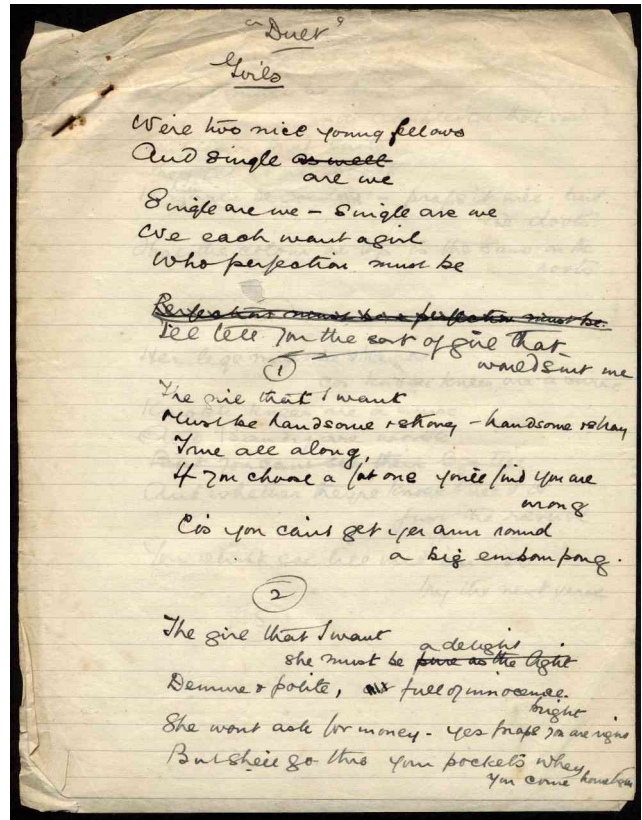 "Duet"
Girls
We're two nice young fellows
And single as well
are we
Single are we – Single are we
We each want a girl
Who perfection must be
Perfection must be – perfection must be.
I'll tell you the sort of girl that
would suit me
1
The girl that I want
Must be handsome & strong – handsome & strong
True all along,
If you choose a fat one you'll find you are
wrong
Cos you can't get yer arm round
a big embompong.
2
The girl that I want
a delight
she must be pure as the light
Demure & polite, full of innocence.
bright
She wont ask for money – yes praps you are right
But she'll go thro your pockets when
you come home